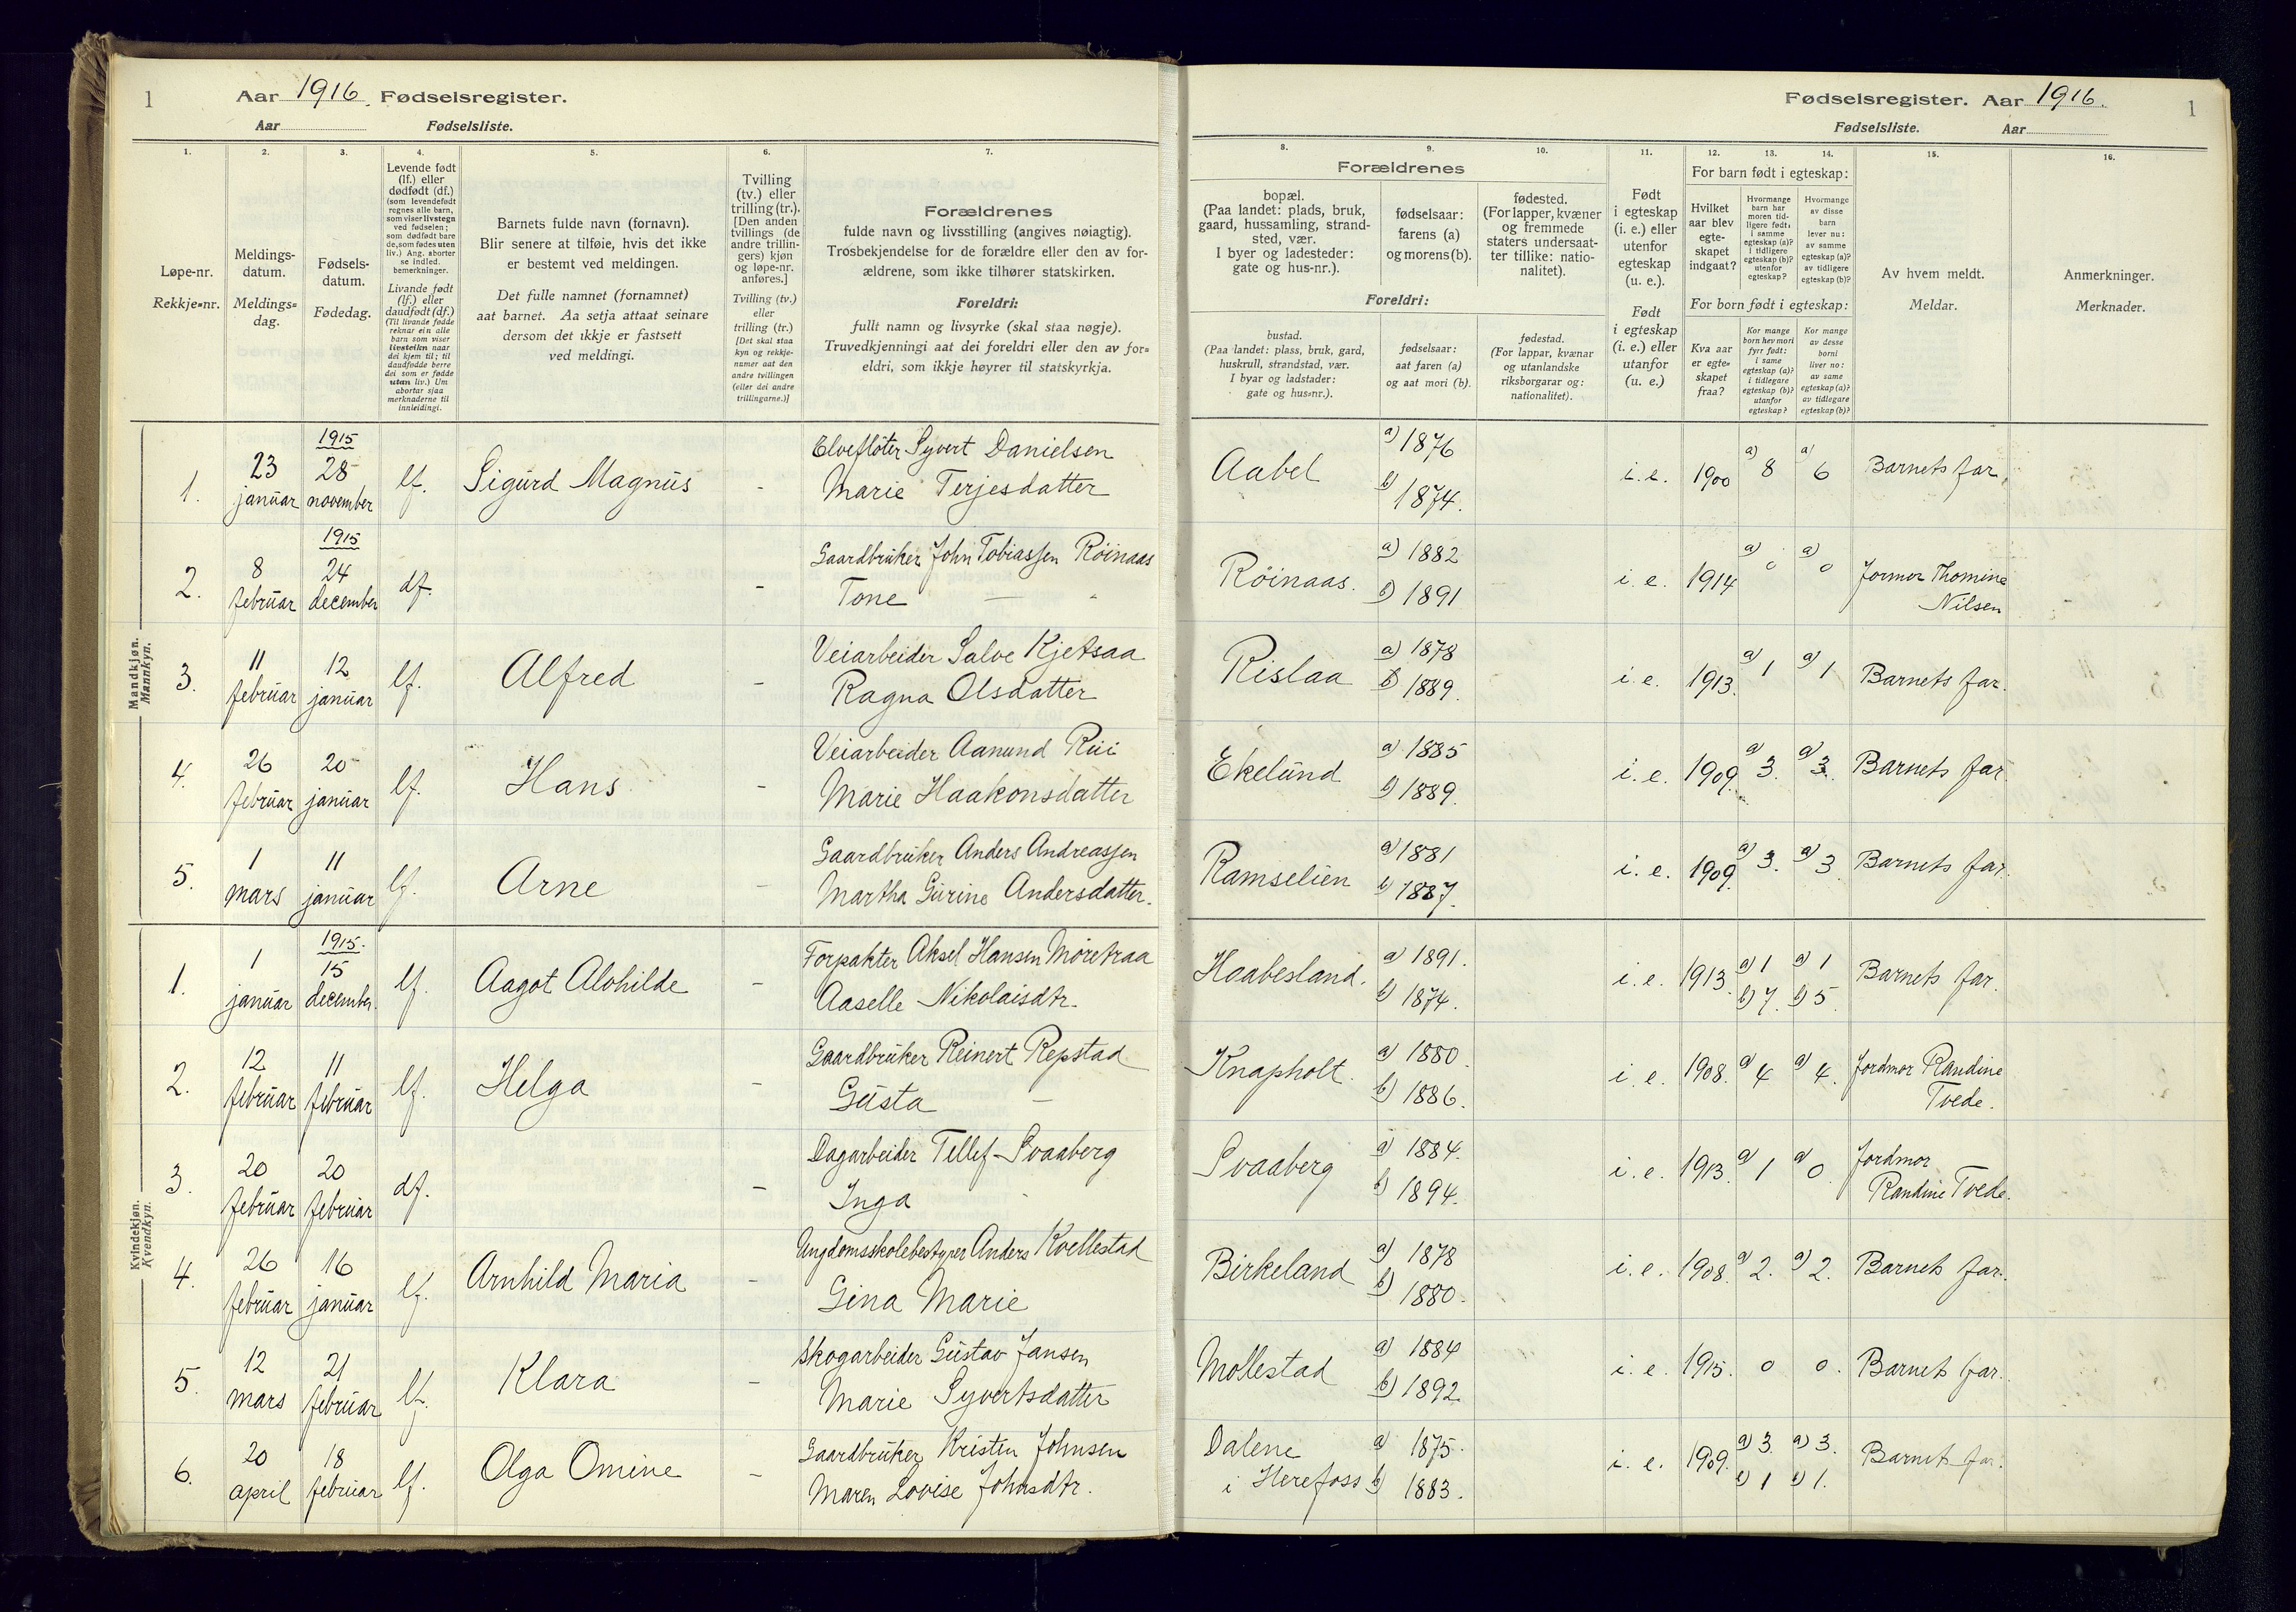 1
Aar 1916. Fødselsregister.
Aar Fødselsliste.
Fødselsregister. Aar 1916.
1
Fødselsliste. Aar
1. 2. 3. 4. 5. 6. 7.
Løpe-nr.
Rekkje-nr.
Meldings-
datum.
Meldings-
dag.
Fødsels-
datum.
Fødedag.
Levende født
(lf.) eller
dødfødt (df.)
(som levendefødt
regnes alle barn,
som viser livstegn
ved fødselen;
som dødfødt bare
de, som fødes uten
liv.) Ang. aborter
se indled.
bemerkninger.
Livande født
(lf.) eller
daudfødt (df.)
(Til livande fødde
reknar ein alle
barn som viser
livsteikn naar
dei kjem til; til
daudfødde berre
dei som er fødde
utan liv.) Um
abortar sjaa
merknaderne til
innleidingi.
Barnets fulde navn (fornavn).
Blir senere at tilføie, hvis det ikke
er bestemt ved meldingen.
Det fulle namnet (fornamnet)
aat barnet. Aa setja attaat seinare
dersom det ikkje er fastsett
ved meldingi.
Tvilling
(tv.) eller
trilling (tr.).
[Den anden
tvillings (de
andre trillin-
gers) kjøn
og løpe-nr.
anføres.]
Tvilling (tv.)
eller
trilling (tr.)
[Det skal staa
kyn og rekkje-
numer aat den
andre tvillingen
(eller dei andre
trillingarne.)]
Forældrenes
fulde navn og livsstilling (angives nøiagtig).
Trosbekjendelse for de forældre eller den av for-
ældrene, som ikke tilhører statskirken.
Foreldri:
fullt namn og livsyrke (skal staa nøgje).
Truvedkjenningi aat dei foreldri eller den av for-
eldri, som ikkje høyrer til statskyrkja.
8. 9. 10. 11. 12. 13. 14. 15. 16.
Forældrenes
bopæl.
(Paa landet: plads, bruk,
gaard, hussamling, strand-
sted, vær.
I byer og ladesteder:
gate og hus-nr.).
fødselsaar:
farens (a)
og morens (b).
fødested.
(For lapper, kvæner
og fremmede
staters undersaat-
ter tillike: natio-
nalitet).
Foreldri:
bustad.
(Paa landet: plass, bruk, gard,
huskrull, strandstad, vær.
I byar og ladstader:
gate og hus-nr.).
fødselsaar:
aat faren (a)
og aat mori (b).
fødestad.
(For lappar, kvænar
og utanlandske
riksborgarar og:
nationalitet).
Født
i egteskap
(i. e.) eller
utenfor
egteskap
(u. e.).
Født
i egteskap
(i. e.) eller
utanfor
(u. e.)
For barn født i egteskap:
Hvilket
aar blev
egte-
skapet
indgaat?
Hvormange
barn har
moren tid-
ligere født,
i samme
egteskap (a)?
i tidligere
egteskap (b)?
utenfor
egteskap?
Hvormange
av disse
barn
lever nu:
av samme
egteskap (a)?
av tidligere
egteskap (b)?
For born født i egteskap:
Kva aar
er egte-
skapet
fraa?
Kor mange
born hev mori
fyrr født:
i same
egteskap (a)?
i tidlegare
egteskap (b)?
utanfor
egteskap?
Kor mange
av desse
borni
liver no:
av same
egteskap (a)?
av tidlegare
egteskap (b)?
Av hvem meldt.
Meldar.
Anmerkninger.
Merknader.
Mandkjøn.
Mannkyn.
1. 23 januar 1915 28 november lf. Sigurd Magnus - Elvefløter Syvert Danielsen
Marie Terjesdatter
Aabel a) 1876 b) 1874. i. e. 1900 a) 8 a) 6 Barnets far.
2. 8 februar 1915 24 december df. - Gaardbruker John Tobiassen Röinaas
Tone — "
Röinaas. a) 1882 b) 1891 i. e. 1914 a) 0 a) 0 Jormor Thomine
Nilsen
3. 11 februar 12 januar lf. Alfred - Veiarbeider Salve Kjetsaa
Ragna Olsdatter
Rislaa a) 1878 b) 1889. i. e. 1913. a) 1 a) 1 Barnets far.
4. 26 februar 20 januar lf. Hans - Veiarbeider Aanund Rui
Marie Haakonsdatter
Ekelund a) 1885 b) 1889. i. e. 1909. a) 3. a) 3. Barnets far.
5. 1 mars 11 januar lf. Arne - Gaardbruker Anders Andreassen
Martha Gurine Andersdatter.
Ramselien a) 1881 b) 1887. i. e. 1909. a) 3. a) 3 Barnets far.
Kvindekjøn.
Kvendkyn.
1. 1 januar 1915. 15 december. lf. Aagot Alvhilde - Forpakter Aksel Hansen Møretraa
Aaselle Nikolaisdtr.
Haabesland. a) 1891. b) 1874. i. e. 1913. a) 1 b) 7. a) 1 b) 5. Barnets far.
2. 12 februar 11 februar lf. Helga - Gaardbruker Reinert Repstad
Gusta —
Knapholt. a) 1880. b) 1886. i. e. 1908. a) 4 a) 4. Jordmor Randine
Tvede.
3. 20 februar 20 februar df. - Dagarbeider Tellef Svaaberg
Inga
Svaaberg a) 1884. b) 1894. i. e. 1913. a) 1 a) 0. Jordmor
Randine Tvede.
4. 26 februar 16 januar lf. Arnhild Maria - Ungdomsskolebestyrer Anders Kvellestad
Gina Marie
Birkeland a) 1878 b) 1880. i. e. 1908. a) 2. a) 2. Barnets far.
5. 12 mars 21 februar lf. Klara - Skogarbeider Gustav Jansen
Marie Syvertsdatter
Mollestad a) 1884 b) 1892 i. e. 1915. 0 0. Barnets far.
6. 20 april 18 februar lf. Olga Omine - Gaardbruker Kristen Johnsen
Maren Lovise Johnsdtr.
Dalene
i Herefoss a) 1875. b) 1883. i. e. 1909. a) 3. b) 1 a) 3. b) 1. Barnets far.